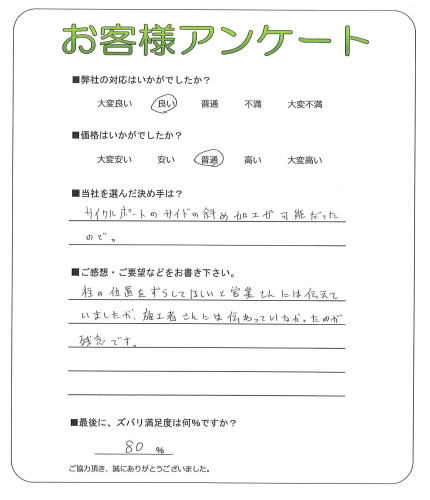 お客様アンケート
■弊社の対応はいかがでしたか？
大変良い 良い 普通 不満 大変不満
■価格はいかがでしたか？
大変安い 安い 普通 高い 大変高い
■当社を選んだ決め手は？
サイクルポートのサイドの斜め加工が可能だった
ので。
■ご感想・ご要望などをお書き下さい。
柱の位置をずらしてほしいと営業さんには伝えて
いましたが、施工者さんには伝わっていなかったのが
残念です。
■最後に、ズバリ満足度は何%ですか？
80 %
ご協力頂き、誠にありがとうございました。